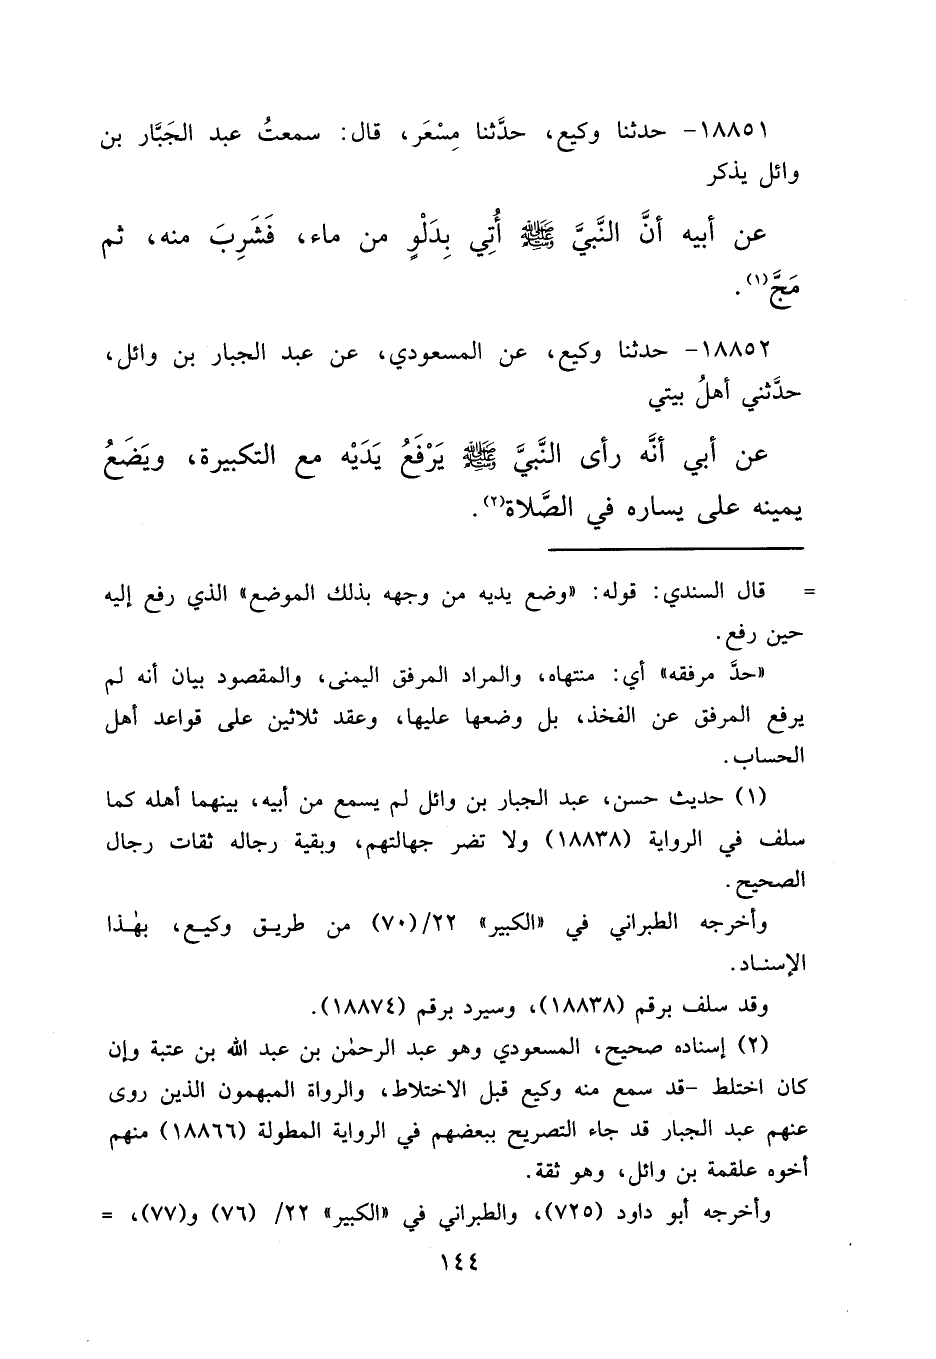 ١٨٨٥١- حدثنا وكيع، حدَّثنا مِسْعَر، قال: سمعتُ عبد الجَبَّار بن
وائل يذكر
عن أبيه أنَّ النَّبيَّ ﷺ أُتِي بِدَلْوٍ من ماء، فَشَرِبَ منه، ثم
مَجَّ(١).
١٨٨٥٢- حدثنا وكيع، عن المسعودي، عن عبد الجبار بن وائل،
حدَّثني أهلُ بيتي
عن أبي أنَّه رأى النَّبيَّ ﷺ يَرْفَعُ يَدَيْه مع التكبيرة، ويَضَعُ
يمينه على يساره في الصَّلاة(٢).
= قال السندي: قوله: «وضع يديه من وجهه بذلك الموضع» الذي رفع إليه
حين رفع.
«حدَّ مرفقه» أي: منتهاه، والمراد المرفق اليمنى، والمقصود بيان أنه لم
يرفع المرفق عن الفخذ، بل وضعها عليها، وعقد ثلاثين على قواعد أهل
الحساب.
(١) حديث حسن، عبد الجبار بن وائل لم يسمع من أبيه، بينهما أهله كما
سلف في الرواية (١٨٨٣٨) ولا تضر جهالتهم، وبقية رجاله ثقات رجال
الصحيح.
وأخرجه الطبراني في «الكبير» ٢٢/(٧٠) من طريق وكيع، بهٰذا
الإسناد.
وقد سلف برقم (١٨٨٣٨)، وسيرد برقم (١٨٨٧٤).
(٢) إسناده صحيح، المسعودي وهو عبد الرحمٰن بن عبد الله بن عتبة وإن
كان اختلط -قد سمع منه وكيع قبل الاختلاط، والرواة المبهمون الذين روى
عنهم عبد الجبار قد جاء التصريح ببعضهم في الرواية المطولة (١٨٨٦٦) منهم
أخوه علقمة بن وائل، وهو ثقة.
وأخرجه أبو داود (٧٢٥)، والطبراني في «الكبير» ٢٢/ (٧٦) و(٧٧)، =
١٤٤